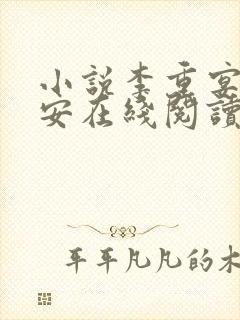 小說李重宴
安在綫閱讀
平平凡凡的木